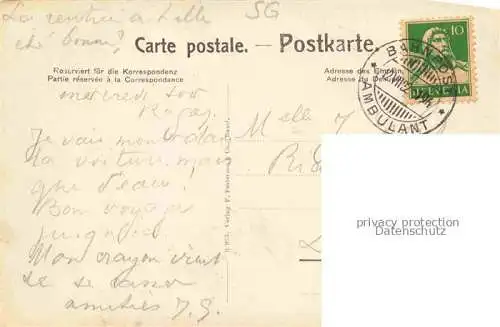 La rentrée à Lille SG
été bonne?
Carte postale. — Postkarte.
Reserviert für die Korrespondenz
Partie réservée à la Correspondance
Adresse des Empfän
Adresse du De
10
HELVETIA
AMBULANT
mercredi soir
Melle
Je vais monter dans
la voiture mais
que d'eau!
Bon voyage
Mon crayon vient
de se casser
amitiés J.G.
privacy protection
Datenschutz